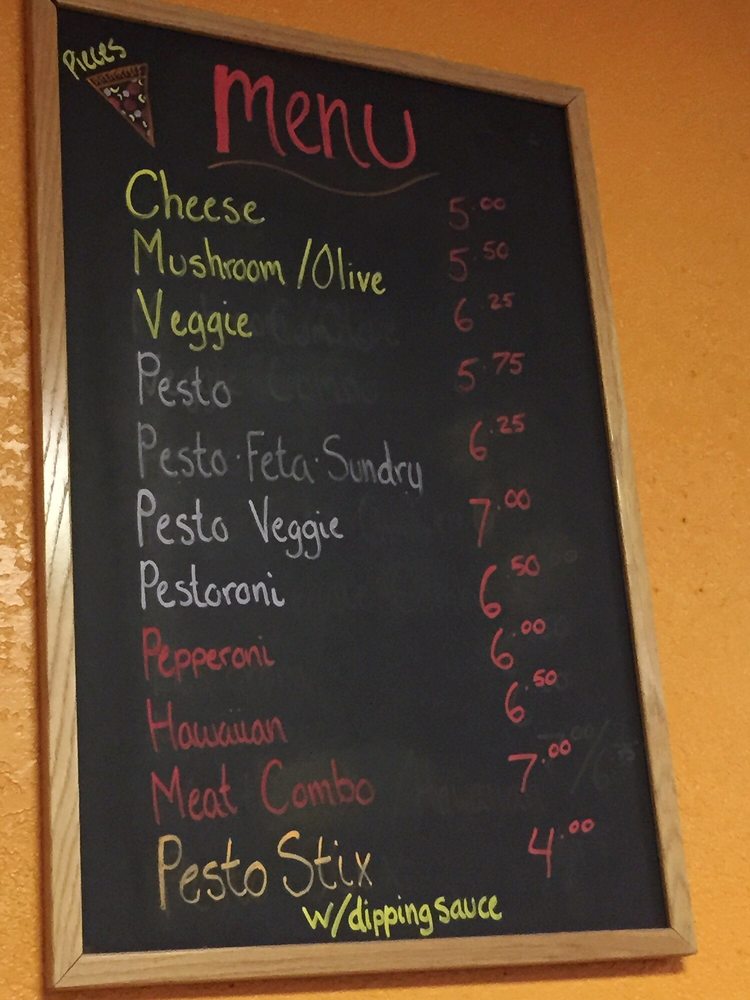 Pieces
Menu
Cheese 5.00
Mushroom/Olive 5.50
Veggie 6.25
Pesto 5.75
Pesto·Feta·Sundry 6.25
Pesto Veggie 7.00
Pestoroni 6.50
Pepperoni 6.00
Hawaiian 6.50
Meat Combo 7.00
Pesto Stix 4.00
w/dipping sauce